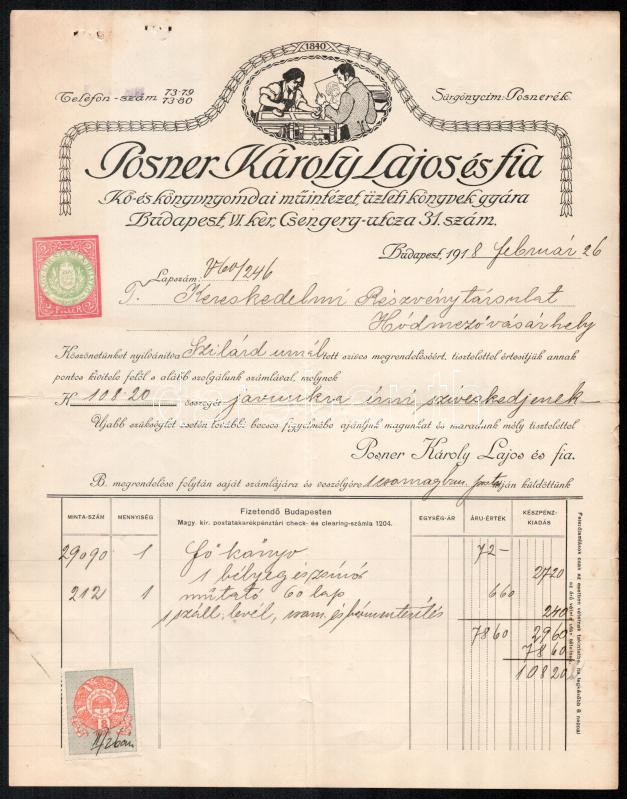 1840
Telefon-szám 73-79
73-80
Sürgönyczím: Posnerék.
Posner Károly Lajos és fia
Kő- és könyvnyomdai műintézet, üzleti könyvek gyára
Budapest, VI. ker, Csengery-utcza 31. szám.
Budapest, 1918 február 26
2 2
FILLÉR
Lapszám: 460/246
T. Kereskedelmi Részvénytársulat
Hódmezővásárhely
Köszönettel nyilvánítva Szilárd
szíves megrendeléséért, tisztelettel értesítjük annak
pontos kivitele felől s alább szolgálunk számlával, melynek
K 108.20 összegét javunkra írni sziveskedjenek
Ujabb szükséglet esetén további becses figyelmébe ajánljuk magunkat és maradunk mély tisztelettel
Posner Károly Lajos és fia.
B. megrendelése folytán saját számlájára és veszélyére 1 csomagban postán küldöttünk
MINTA-SZÁM MENNYISÉG Fizetendő Budapesten
Magy. kir. postatakarékpénztári check- és clearing-számla 1204. EGYSÉG-ÁR ÁRU-ÉRTÉK KÉSZPÉNZ-KIADÁS
29090 1 Főkönyv 72-
1 bélyeg és zsinór 27 20
212 1 mutató 60 lap 6 60
1 száll. levél, és bérmentesítés 2 40
78 60 29 60
78 60
108 20